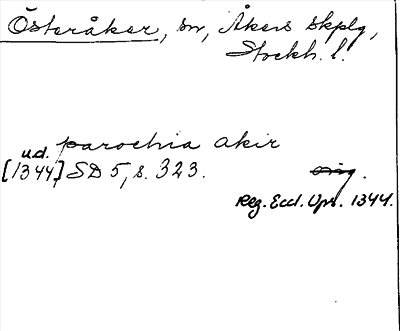 Österåker, sn, Åkers skplg,
Stockh. l.
parochia akir
u.d.
[1344] SD 5, s. 323.
orig.
Reg. Eccl. Ups. 1344.